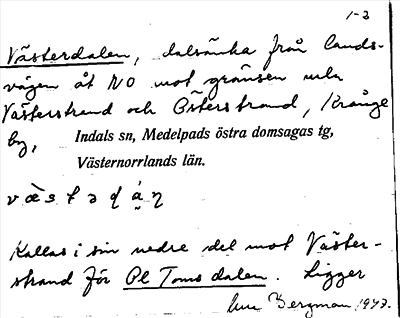 1-2
Västerdalen, dalsänka från lands-
vägen åt NO mot gränsen mln
Västerstrand och Österstrand, Krånge
by, Indals sn, Medelpads östra domsagas tg,
Västernorrlands län.
Kallas i sin nedre del mot Väster-
strand för Pl Toms dalen. Ligger
Bergman 1943.